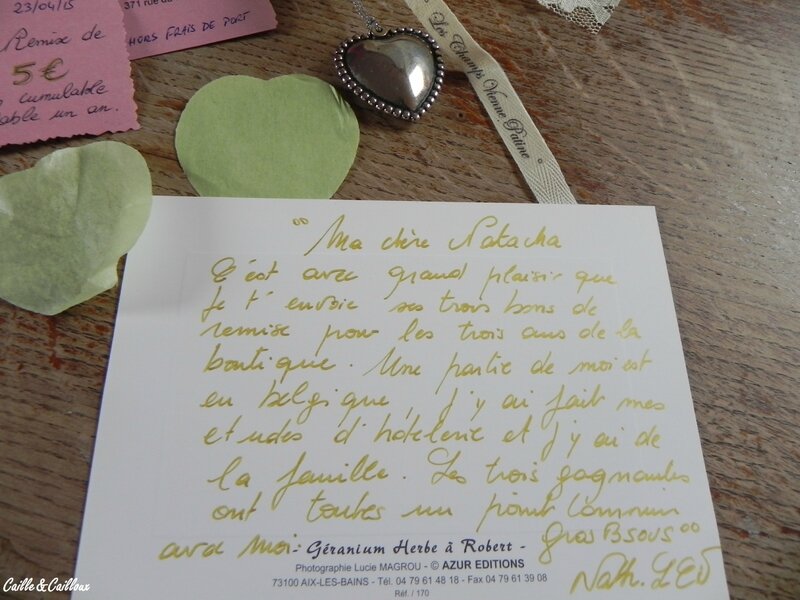 23/04/15
Remise de
5 €
cumulable
able un an.
371 rue du
HORS FRAIS DE PORT
Les Champs Vienne Patine
"Ma chère Natacha
C'est avec grand plaisir que
je t'envoie ses trois bons de
remise pour les trois ans de la
boutique. Une partie de moi est
en belgique, j'y ai fait mes
etudes d'hôtelerie et j'y ai de
la famille. Les trois gagnantes
ont toutes un point Commun
avec moi.
Gros Bsous"
- Géranium Herbe à Robert -
Photographie Lucie MAGROU - © AZUR EDITIONS
73100 AIX-LES-BAINS - Tél. 04 79 61 48 18 - Fax 04 79 61 39 08
Réf. / 170
Nath.
Caille & Cailloux